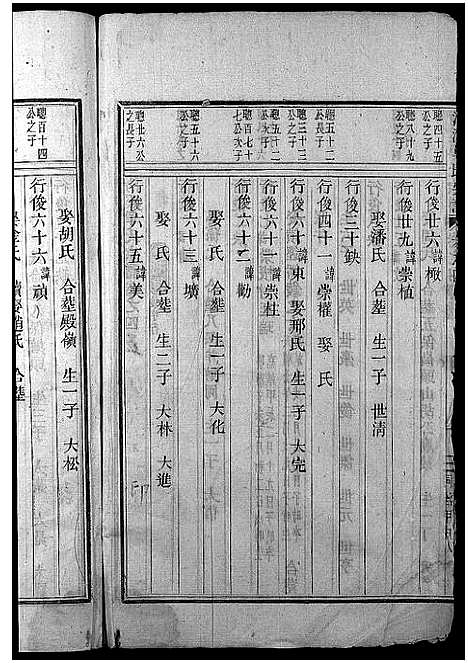 聰四十五公之子
行俊廿六 諱楸
聰八十九公之子
行俊廿九 諱崇植
娶潘氏 合塟 生一子 世淸
行俊三十 缺
聰五十二公長子
行俊四十一 諱崇權 娶 氏
聰三十三公次子
行俊六十一 諱東 娶邢氏 生一子 大完
聰五十二公次子
行俊六十一 諱崇杜
聰百七十七公次子
行俊六十二 諱勸
娶 氏 合塟 生一子 大化
聰五十六公之子
行俊六十三 諱壙
娶 氏 合塟 生二子 大林 大進
聰廿六公之長子
行俊六十五 諱美
娶胡氏 合塟殿嶺 生一子 大松
聰百十四公之子
行俊六十六 諱禎